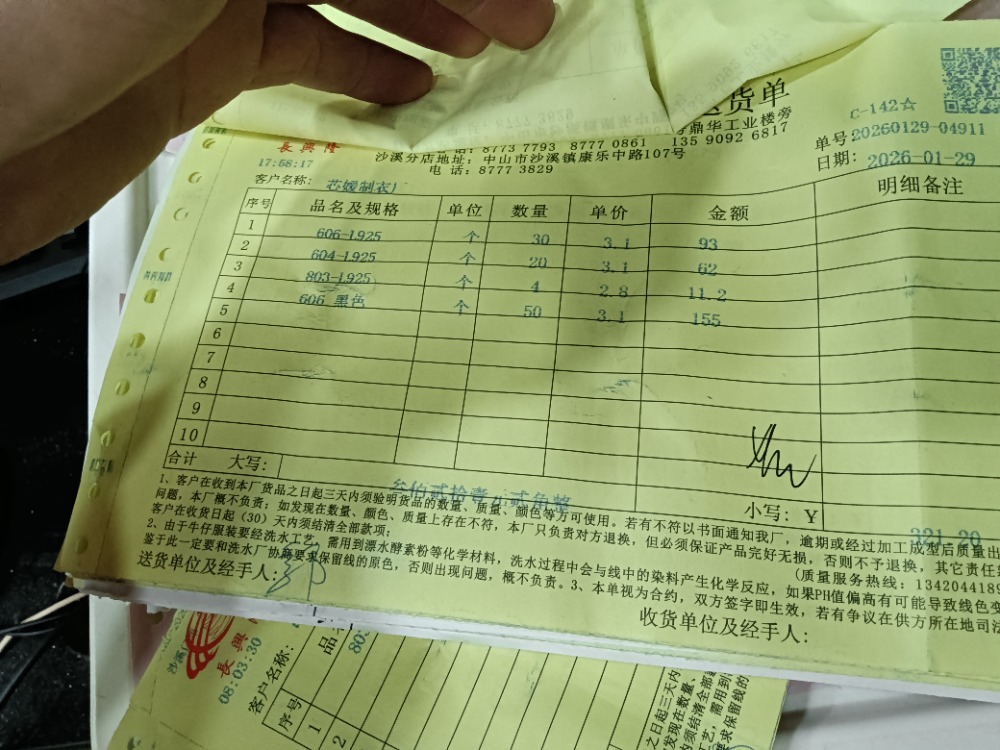 货单
C-142☆
鼎华工业楼旁
单号20260129-04911
長興隆
8773 7793 8777 0861 135 9092 6817
日期: 2026-01-29
17:58:17
沙溪分店地址: 中山市沙溪镇康乐中路107号
电 话: 8777 3829
客户名称: 芯媛制衣厂
序号 品名及规格 单位 数量 单价 金额 明细备注
1 606-L925 个 30 3.1 93
2 604-L925 个 20 3.1 62
3 803-L925 个 4 2.8 11.2
4 606 黑色 个 50 3.1 155
5
6
7
8
9
10
合计 大写: 叁佰贰拾壹元贰角整 小写: Y 321.20
1、客户在收到本厂货品之日起三天内须验明货品的数量、质量、颜色等方可使用。若有不符以书面通知我厂,逾期或经过加工成型后质量出
问题,本厂概不负责;如发现在数量、颜色、质量上存在不符,本厂只负责对方退换,但必须保证产品完好无损,否则不予退换,其它责任
客户在收货日起(30)天内须结清全部款项;
(质量服务热线: 134204418
2、由于牛仔服装要经洗水工艺,需用到漂水酵素粉等化学材料,洗水过程中会与线中的染料产生化学反应,如果PH值偏高有可能导致线色变
鉴于此一定要和洗水厂协商要求保留线的原色,否则出现问题,概不负责。3、本单视为合约,双方签字即生效,若有争议在供方所在地司法
送货单位及经手人:
收货单位及经手人:
長興
08:03:30
客户名称:
序号
品
803
1
2